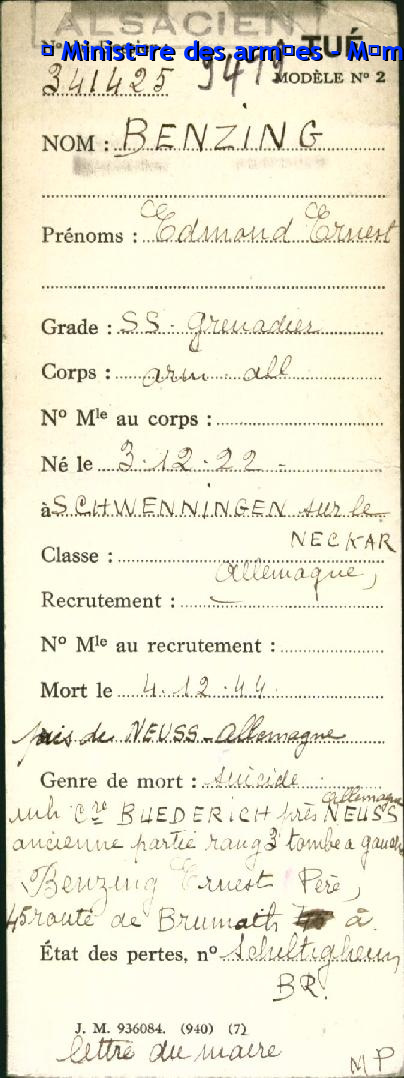 ALSACIEN
TUÉ
341425
MODÈLE Nº 2
NOM : BENZING
Prénoms : Edmond Ernest
Grade : SS - grenadier
Corps : arm all
Nº Mle au corps :
Né le 3.12.22 -
à SCHWENNINGEN sur le
NECKAR
Classe :
Allemagne,
Recrutement :
Nº Mle au recrutement :
Mort le 4.12.44
près de NEUSS - Allemagne
Genre de mort : suicide
Allemagne
inh Cre BUEDERICH près NEUSS
ancienne partie rang 3 tombe a gauche
Benzing Ernest Père,
45 route de Brumath à
État des pertes, nº Schiltigheim,
BR.
J. M. 936084. (940) (7)
lettre du maire
MP